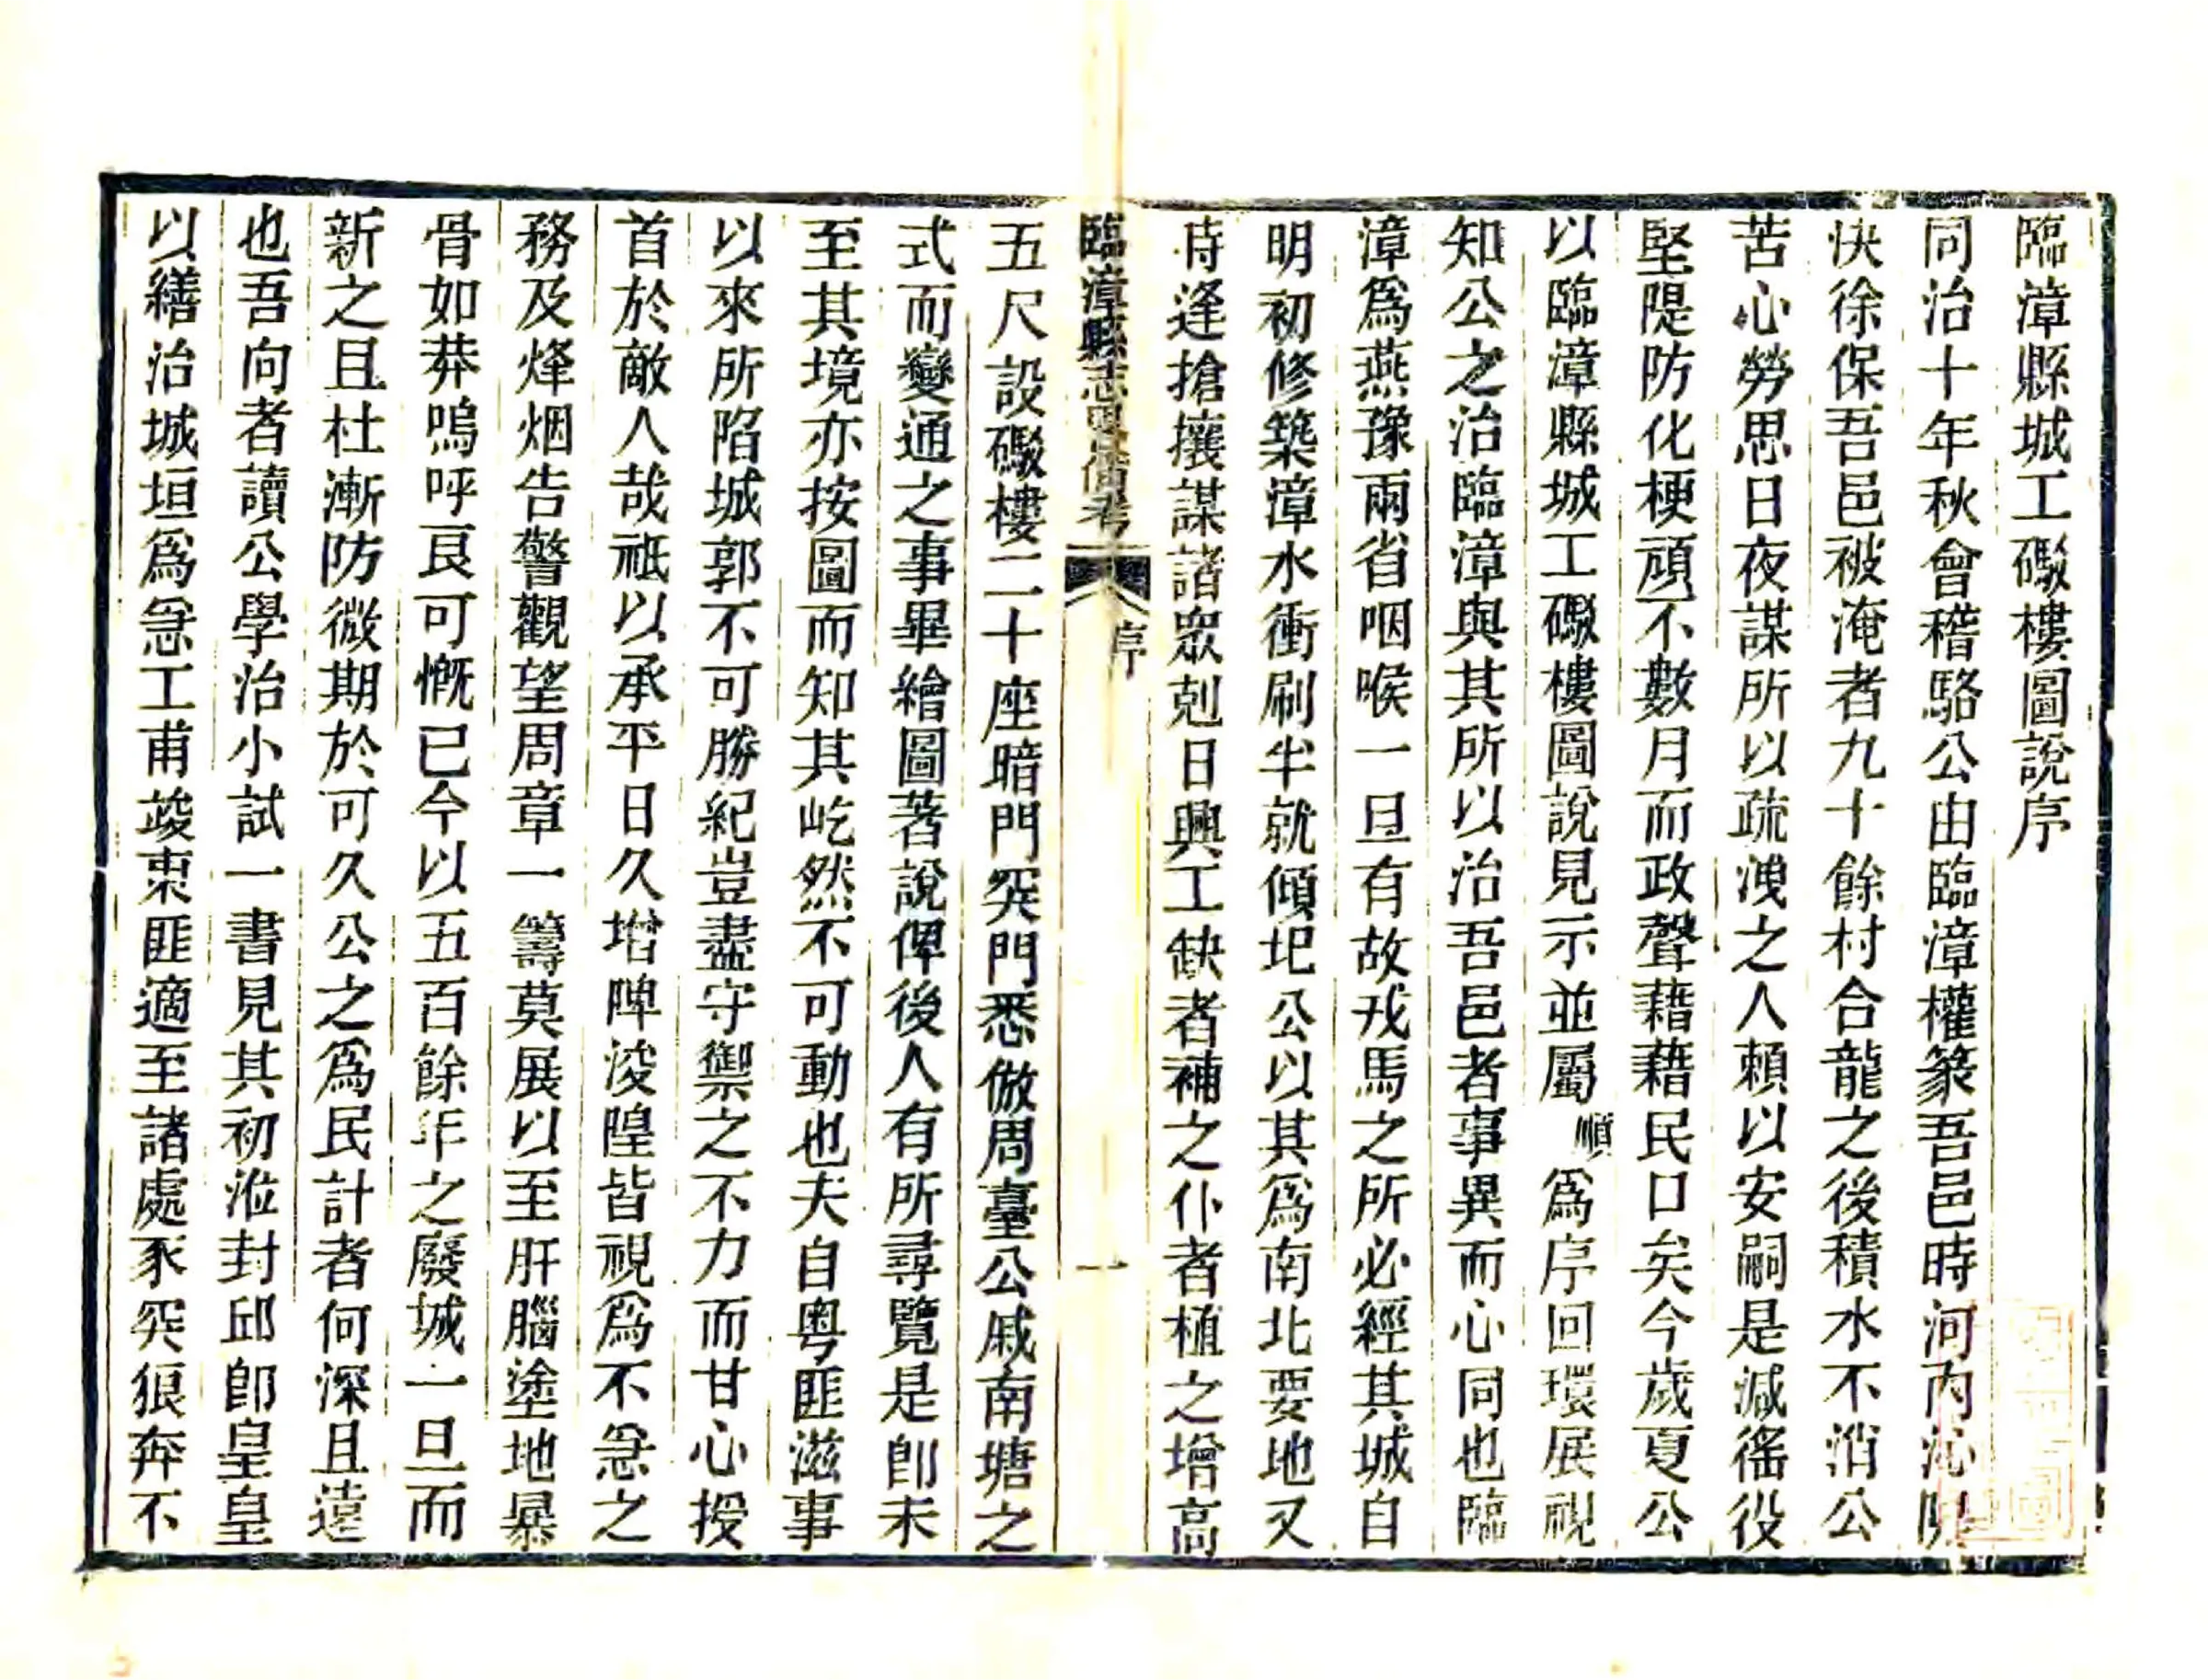 臨漳縣城工礮樓圖說序
同治十年秋會稽駱公由臨漳權篆吾邑時河內沁隄
快徐保吾邑被淹者九十餘村合龍之後積水不消公
苦心勞思日夜謀所以疏洩之人賴以安嗣是減徭役
堅隄防化梗頑不數月而政聲藉藉民口矣今歲夏公
以臨漳縣城工礮樓圖說見示並屬順為序回環展視
知公之治臨漳與其所以治吾邑者事異而心同也臨
漳為燕豫兩省咽喉一旦有故戎馬之所必經其城自
明初修築漳水衝刷半就傾圮公以其為南北要地又
時逢搶攘謀諸眾剋日興工缺者補之仆者植之增高
臨漳縣志 備考 序 一
五尺設礮樓二十座暗門突門悉倣周臺公戚南塘之
式而變通之事畢繪圖著說俾後人有所尋覽是卽未
至其境亦按圖而知其屹然不可動也夫自粵匪滋事
以來所陷城郭不可勝紀豈盡守禦之不力而甘心授
首於敵人哉祗以承平日久增陴浚隍皆視為不急之
務及烽烟告警觀望周章一籌莫展以至肝腦塗地暴
骨如莽嗚呼良可慨已今以五百餘年之廢城一旦而
新之且杜漸防微期於可久公之為民計者何深且遠
也吾向者讀公學治小試一書見其初涖封邱卽皇皇
以繕治城垣為急工甫竣東匪適至諸處豕突狼奔不